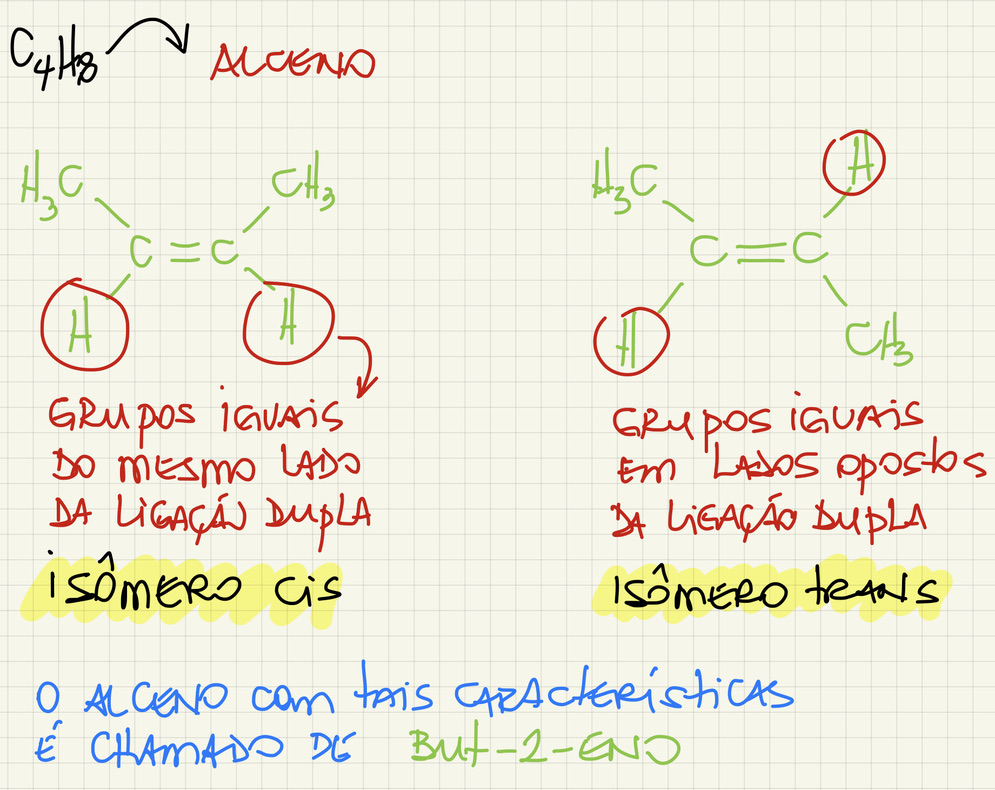 C4H8 ALCENO
H3C CH3
C = C
H H
H3C H
C = C
H CH3
GRUPOS IGUAIS
DO MESMO LADO
DA LIGAÇÃO DUPLA
ISÔMERO CIS
GRUPOS IGUAIS
EM LADOS OPOSTOS
DA LIGAÇÃO DUPLA
ISÔMERO TRANS
O ALCENO COM TAIS CARACTERÍSTICAS
É CHAMADO DE BUT-2-ENO